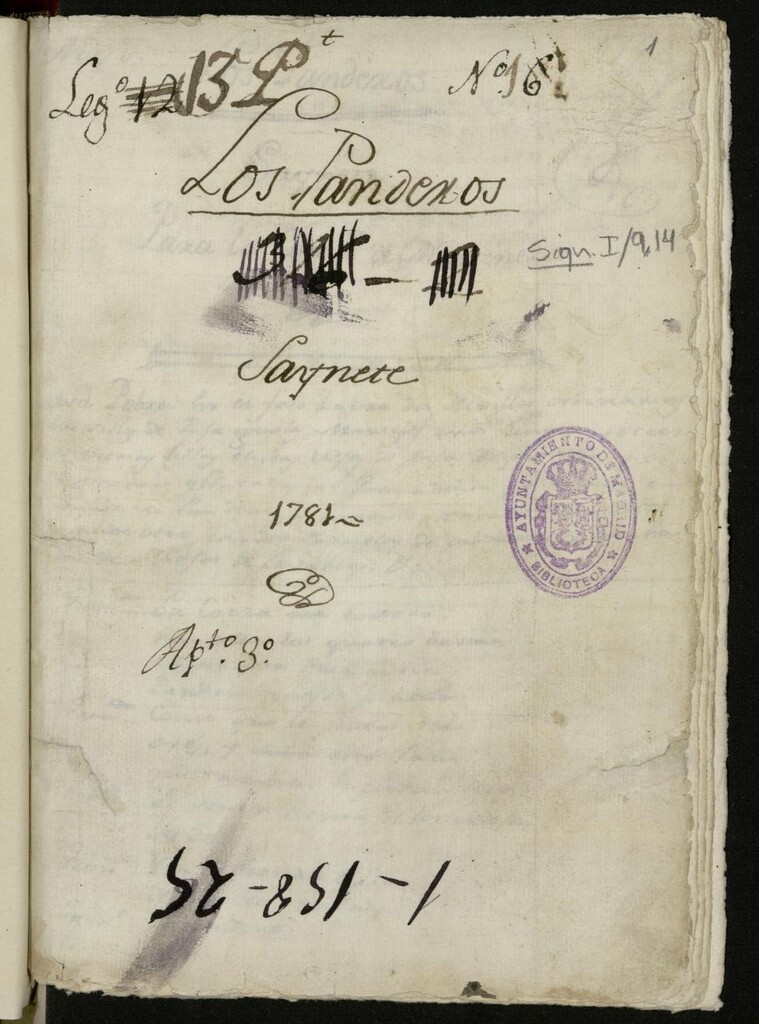 Leg.º 12 13 P t
Nº 16
1
Los Panderos
Sign. I/9,14
Saynete
AYUNTAMIENTO DE MADRID
BIBLIOTECA
1781
Apto. 3º
1-158-25